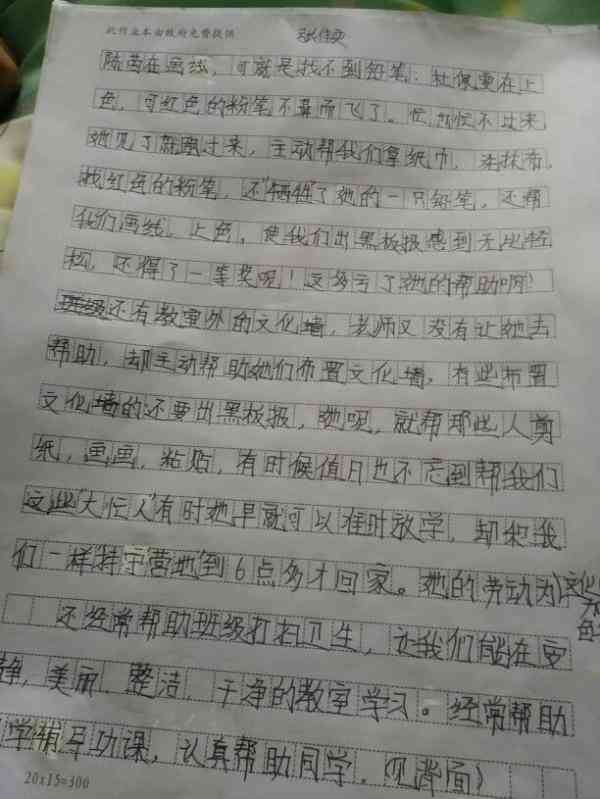 此作业本由政府免费提供
陈茜在画线，可就是找不到铅笔；杜保雯在上
色，可红色的粉笔不翼而飞了。忙都忙不过来，
她见了就跑过来，主动帮我们拿纸巾，洗抹布，
找红色的粉笔，还“牺牲”了她的一只铅笔，还帮
我们画线，上色，使我们出黑板报感到无比轻
松，还得了一等奖呢！这多亏了她的帮助啊！
班级还有教室外的文化墙，老师又没有让她去
帮助，却主动帮助她们布置文化墙，有些布置
文化墙的还要出黑板报，她呢，就帮那些人剪
纸，画画，粘贴，有时候值日也不忘到帮我们
这些“大忙人”有时她早就可以准时放学，却和我
们一样持守营地到6点多才回家。她的劳动为文化
还经常帮助班级打扫卫生，让我们能在安
静，美丽、整洁、干净的教室学习。经常帮助
学辅导功课，认真帮助同学。（见背面）
20x15=300